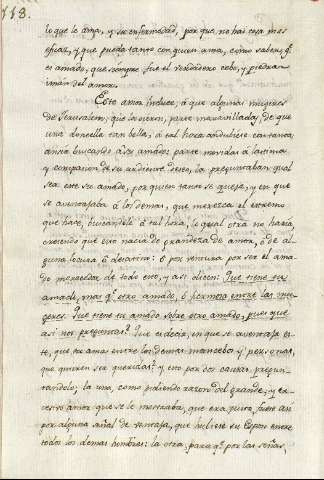 118.
lo que le ama, y su enfermedad, por que no hai cosa mas
eficaz, y que pueda tanto con quien ama, como saber, q.e
es amado, que siempre fue el verdadero cebo, y piedra
imán del amor.
Este amor induce, á que algunas mugeres
de Jerusalem, que la vieron, parte maravilladas, de que
una doncella tan bella, á tal hora anduviese con tanta
ansia buscando á su amado; parte movidas á lastima
y compasion de su ardiente deseo, la preguntaban qual
sea este su amado, por quien tanto se queja, y en que
se aventajaba á los demas, que merezca el extremo
que hace, buscandole á tal hora, lo qual otra no haria,
creiendo que esto nacia de grandeza de amor, ó de al-
guna locura ó desatino: ó por ventura por ser el ama-
do merecedor de todo esto, y asi dicen: Que tiene tu
amado, mas q.e otro amado, ó hermosa entre las mu-
geres. Que tiene tu amado sobre otro amado, pues que
asi nos preguntas? Que es decir, en que se aventaja es-
te, que tu amas entre los demas mancebos y personas,
que quieren ser queridas? y esto por dos causas pregun-
tandolo; la una, como pidiendo razon del grande, y ex-
cesivo amor que se le mostraba, que era justo, fuese an
por alguna señal de ventaja, que hubiese su Esposo entre
todos los demas hombres: la otra, para q.e por las señas,